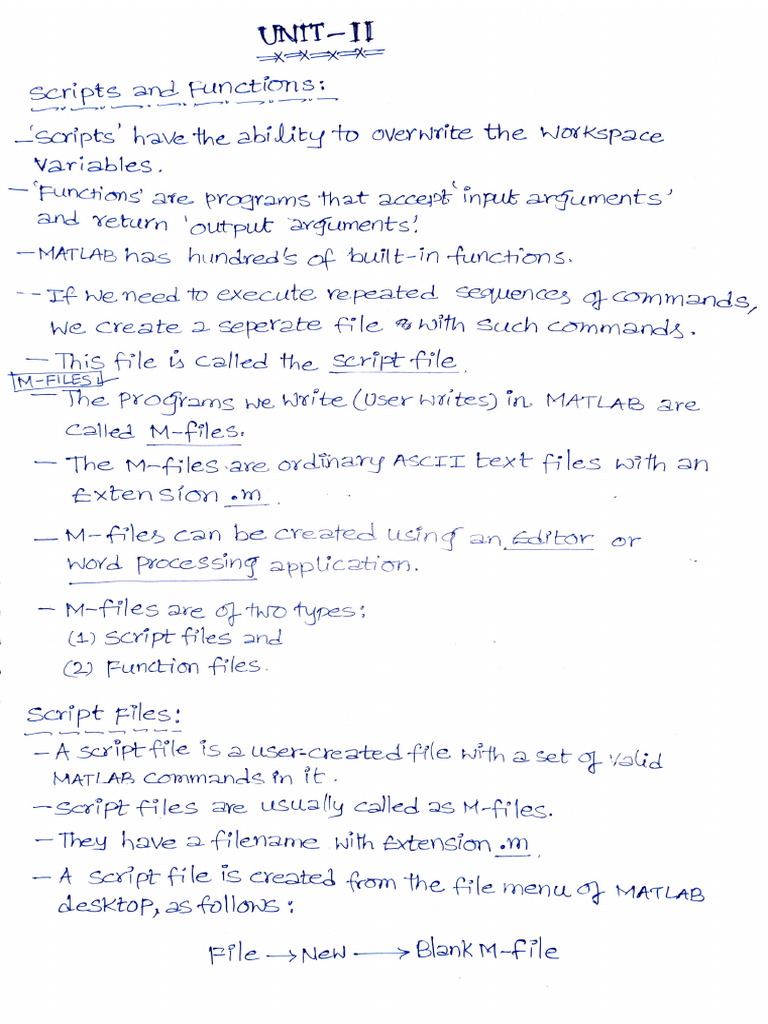 UNIT-II
Scripts and Functions:
- 'Scripts' have the ability to overwrite the workspace
variables.
- 'Functions' are programs that accept 'input arguments'
and return 'output arguments'.
- MATLAB has hundred's of built-in functions.
-- If we need to execute repeated sequences of commands,
we create a seperate file with such commands.
- This file is called the script file.
M-FILES
- The programs we write (user writes) in MATLAB are
called M-files.
- The M-files are ordinary ASCII text files with an
Extension .m
- M-files can be created using an Editor or
word processing application.
- M-files are of two types:
(1) Script files and
(2) Function files.
Script Files:
- A script file is a user-created file with a set of valid
MATLAB commands in it.
- Script files are usually called as M-files.
- They have a filename with Extension .m
- A script file is created from the file menu of MATLAB
desktop, as follows:
File → New → Blank M-file